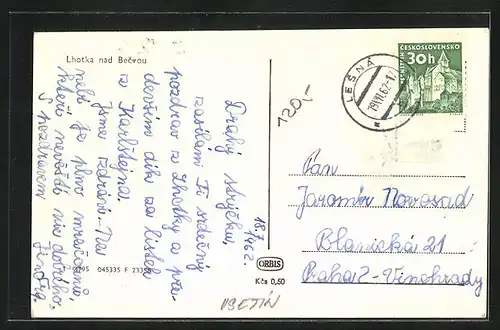 Lhotka nad Bečvou
Drahý strýčku,
zasílám Ti srdečný
pozdrav z Lhotky a pře-
devším dík za lístek
z Karlštejna.
Jsme zdrávi. Na
nebi je plno mračen,
které nevěští nic dobrého.
S pozdravem Jindra.
18.7.
1962.
120,-
LEŠNÁ
ČESKOSLOVENSKO
30h
Pan
Jaromír Novosad
Blanická 21
Praha 2 - Vinohrady
045335 F 2335
ORBIS
Kčs 0,60
VSETÍN